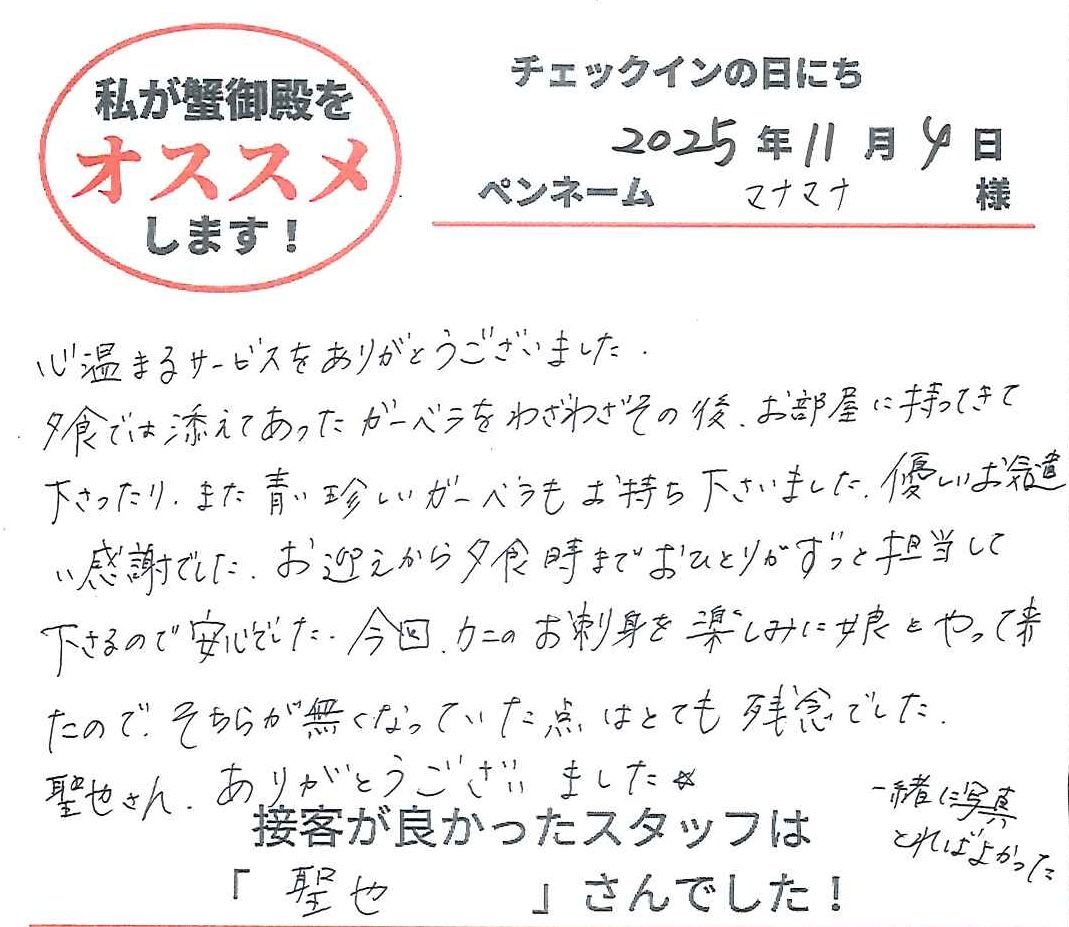 私が蟹御殿を
オススメ
します！
チェックインの日にち
2025年11月4日
ペンネーム マナマナ 様
心温まるサービスをありがとうございました.
夕食では添えてあったガーベラをわざわざその後、お部屋に持ってきて
下さったり、また青い珍しいガーベラもお持ち下さいました。優しいお気遣
い感謝でした. お迎えから夕食時までおひとりがずっと担当して
下さるので安心でした. 今回、カニのお刺身を楽しみに娘とやって来
たので、そちらが無くなっていた点はとても残念でした.
聖也さん. ありがとうございました☆
一緒に写真
とればよかった
接客が良かったスタッフは
「 聖也 」さんでした！